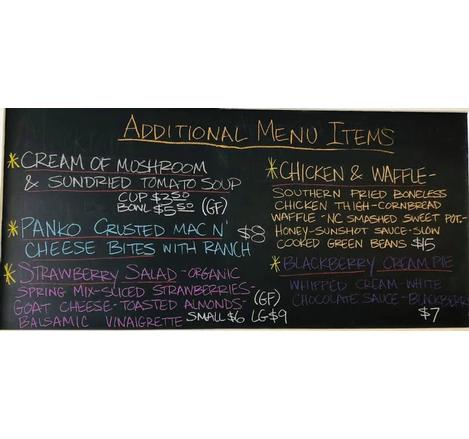 ADDITIONAL MENU ITEMS
*CREAM OF MUSHROOM
& SUNDRIED TOMATO SOUP
CUP $3.50
BOWL $5.50 (GF)
*PANKO CRUSTED MAC N' $8
CHEESE BITES WITH RANCH
*STRAWBERRY SALAD-ORGANIC
SPRING MIX-SLICED STRAWBERRIES-
GOAT CHEESE-TOASTED ALMONDS- (GF)
BALSAMIC VINAIGRETTE SMALL $6 LG $9
*CHICKEN & WAFFLE-
SOUTHERN FRIED BONELESS
CHICKEN THIGH-CORNBREAD
WAFFLE-NC SMASHED SWEET POT.-
HONEY-SUNSHOT SAUCE-SLOW
COOKED GREEN BEANS $15
*BLACKBERRY CREAM PIE
WHIPPED CREAM-WHITE
CHOCOLATE SAUCE-BLACKBERRIES
$7